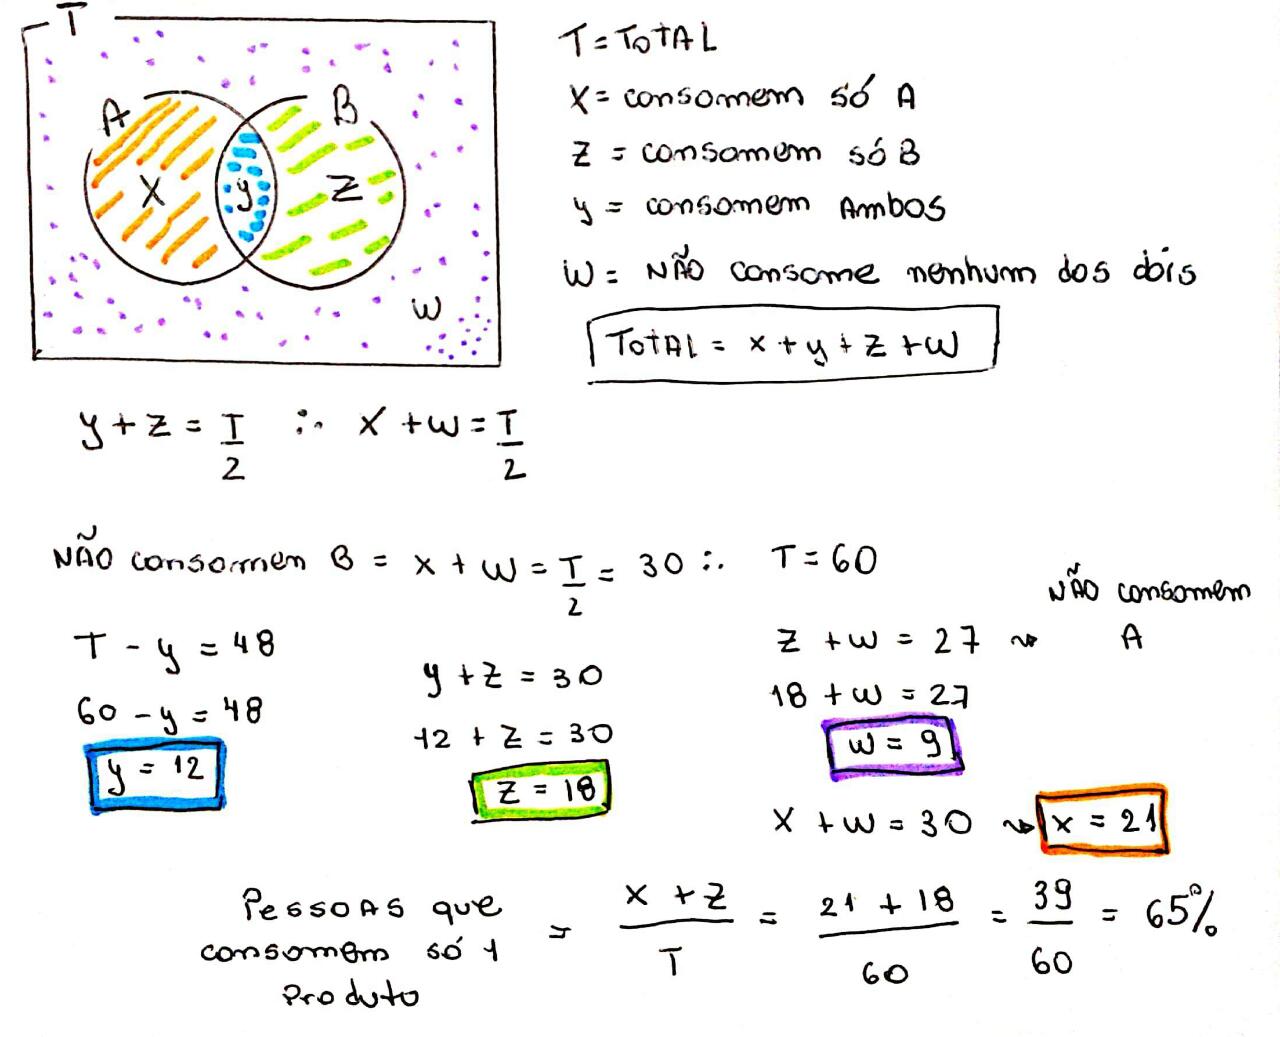 T
A
B
X
y
Z
W
T = TOTAL
X = consomem só A
Z = consomem só B
y = consomem Ambos
W = NÃO consome nenhum dos dois
TOTAL = x + y + z + w
y + z = T/2 ∴ x + w = T/2
NÃO consomem B = x + w = T/2 = 30 ∴ T = 60
T - y = 48
60 - y = 48
y = 12
y + z = 30
12 + z = 30
z = 18
NÃO consomem
z + w = 27 ⇝ A
18 + w = 27
w = 9
x + w = 30 ⇝ x = 21
Pessoas que
consomem só 1
Produto
= (x + z)/T = (21 + 18)/60 = 39/60 = 65%